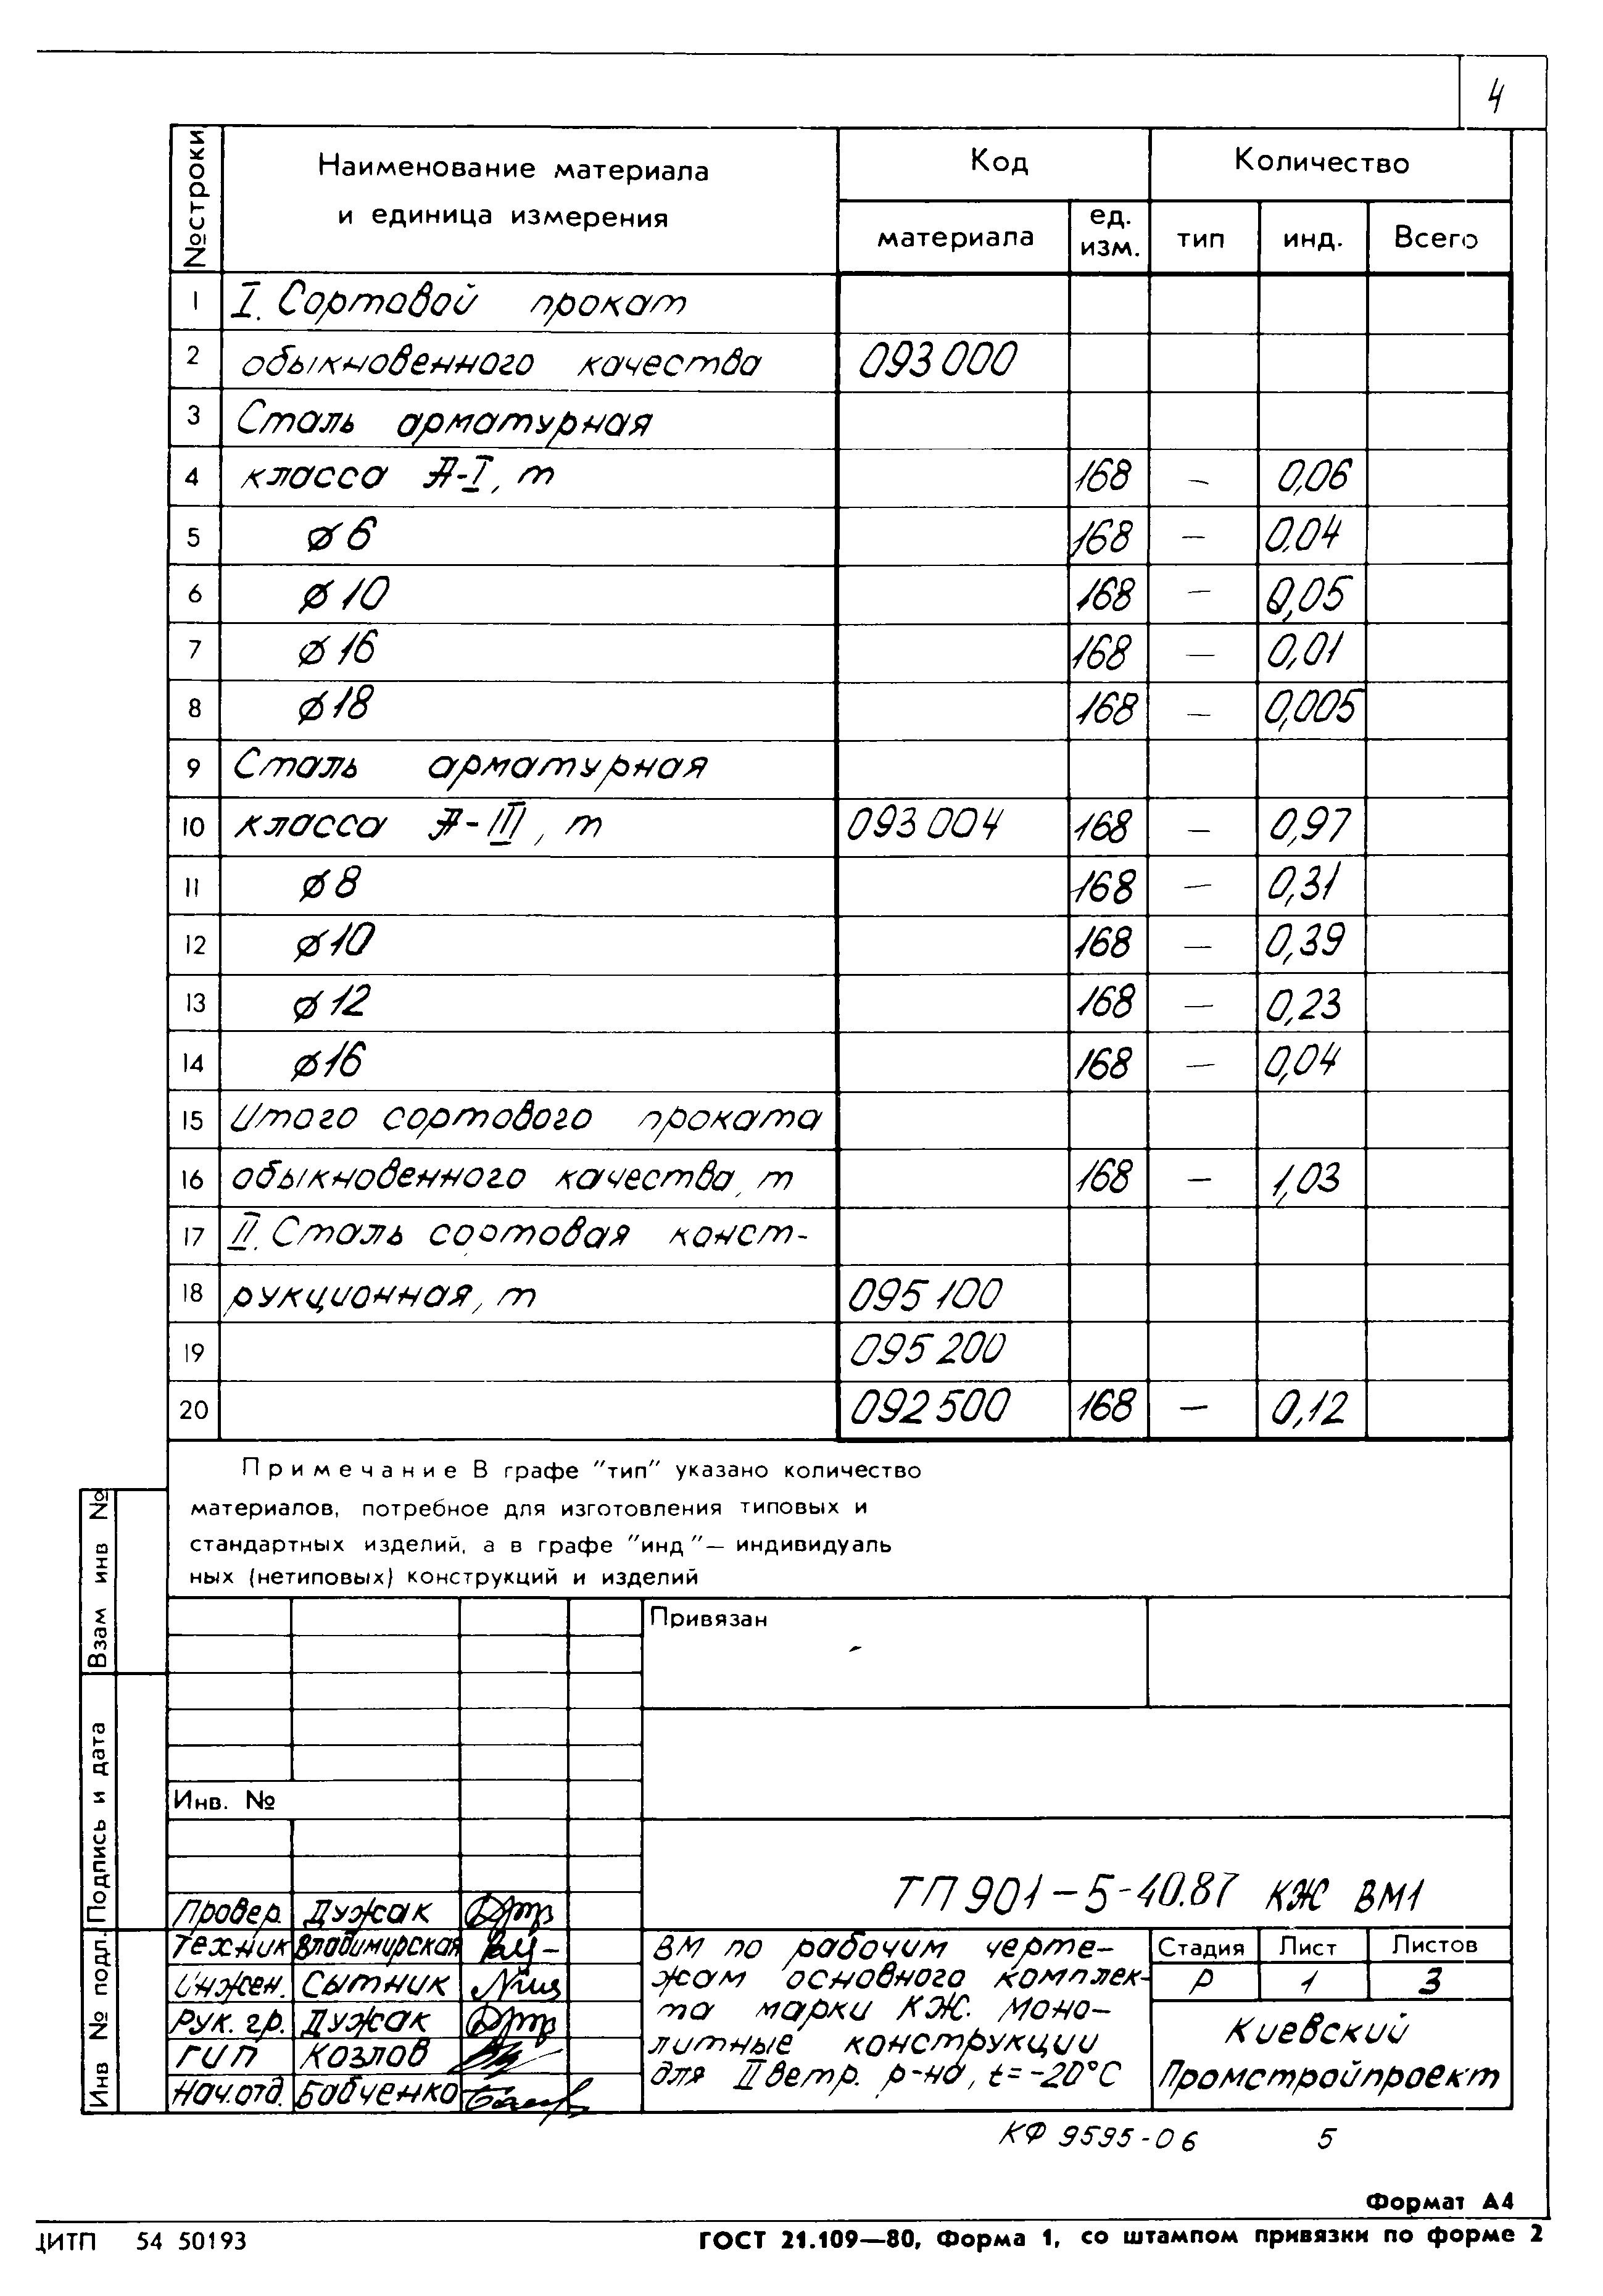 4
№ строки
Наименование материала
и единица измерения
Код
Количество
материала
ед.
изм.
тип
инд.
Всего
1 I. Сортовой прокат
2 обыкновенного качества 093000
3 Сталь арматурная
4 класса А-I, т 168 – 0,06
5 ⌀6 168 – 0,04
6 ⌀10 168 – 0,05
7 ⌀16 168 – 0,01
8 ⌀18 168 – 0,005
9 Сталь арматурная
10 класса А-III, т 093004 168 – 0,97
11 ⌀8 168 – 0,31
12 ⌀10 168 – 0,39
13 ⌀12 168 – 0,23
14 ⌀16 168 – 0,04
15 Итого сортового проката
16 обыкновенного качества, т 168 – 1,03
17 II. Сталь сортовая конст-
18 рукционная, т 095100
19 095200
20 092500 168 – 0,12
Примечание В графе "тип" указано количество
материалов, потребное для изготовления типовых и
стандартных изделий, а в графе "инд"— индивидуаль
ных (нетиповых) конструкций и изделий
Взам инв №
Подпись и дата
Инв № подл.
Привязан
Инв. №
ТП 901-5-40.87 КЖ ВМ1
Провер. Дужак
Техник Владимирская
Инжен. Сытник
Рук. гр. Дужак
ГИП Козлов
Нач.отд. Бабченко
ВМ по рабочим черте-
жам основного комплек-
та марки КЖ. Моно-
литные конструкции
для II ветр. р-на, t=-20°С
Стадия Лист Листов
Р 1 3
Киевский
Промстройпроект
КФ 9595-06 5
Формат А4
ЦИТП 54 50193
ГОСТ 21.109—80, Форма 1, со штампом привязки по форме 2